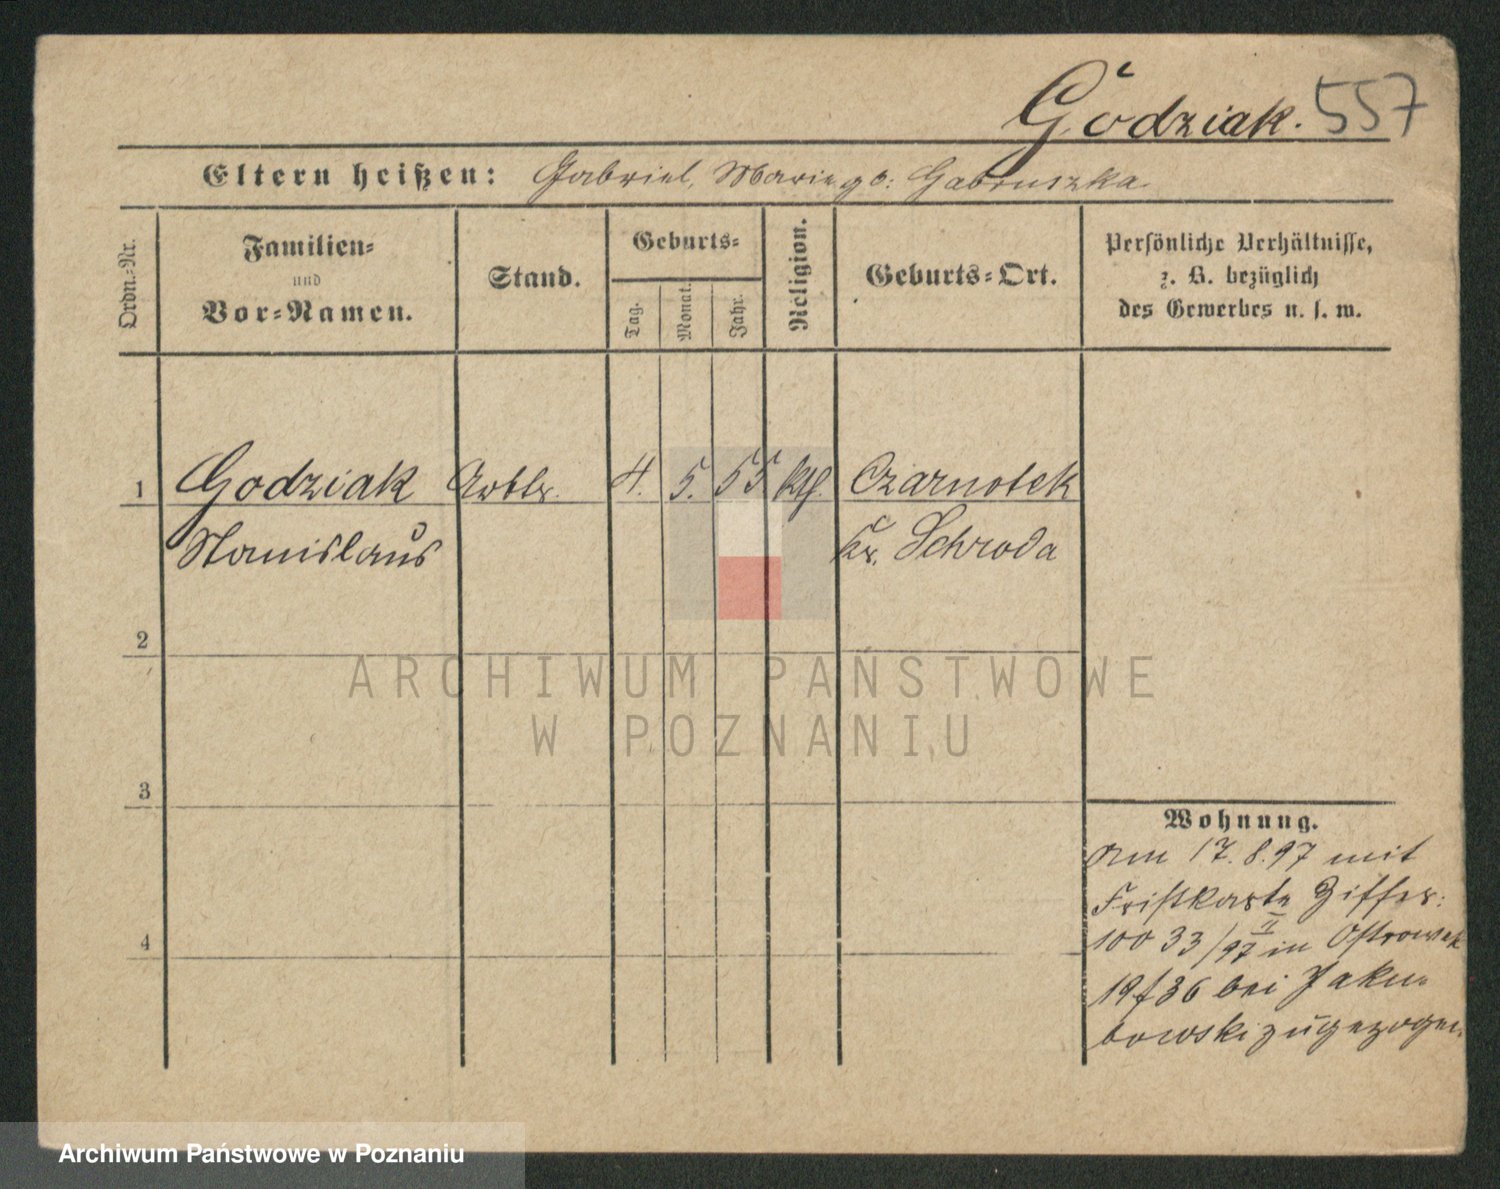 Godziak. 557
Eltern heißen: Gabriel, Marie gb: Gabruszka.
Ordn.-Nr.
Familien-
und
Vor-Namen.
Stand.
Geburts-
Tag.
Monat.
Jahr.
Religion.
Geburts-Ort.
Persönliche Verhältnisse,
z. B. bezüglich
des Gewerbes u. s. w.
1 Godziak Arbtr. 4. 5. 55 kth. Czarnotek
Stanislaus Kr. Schroda
2
3
4
Wohnung.
Am 17.8.97 mit
Fristkarte Ziffer:
10033/97 II in Ostrowek
19/36 bei Jaku-
bowski zugezogen.
ARCHIWUM PAŃSTWOWE
W POZNANIU
Archiwum Państwowe w Poznaniu